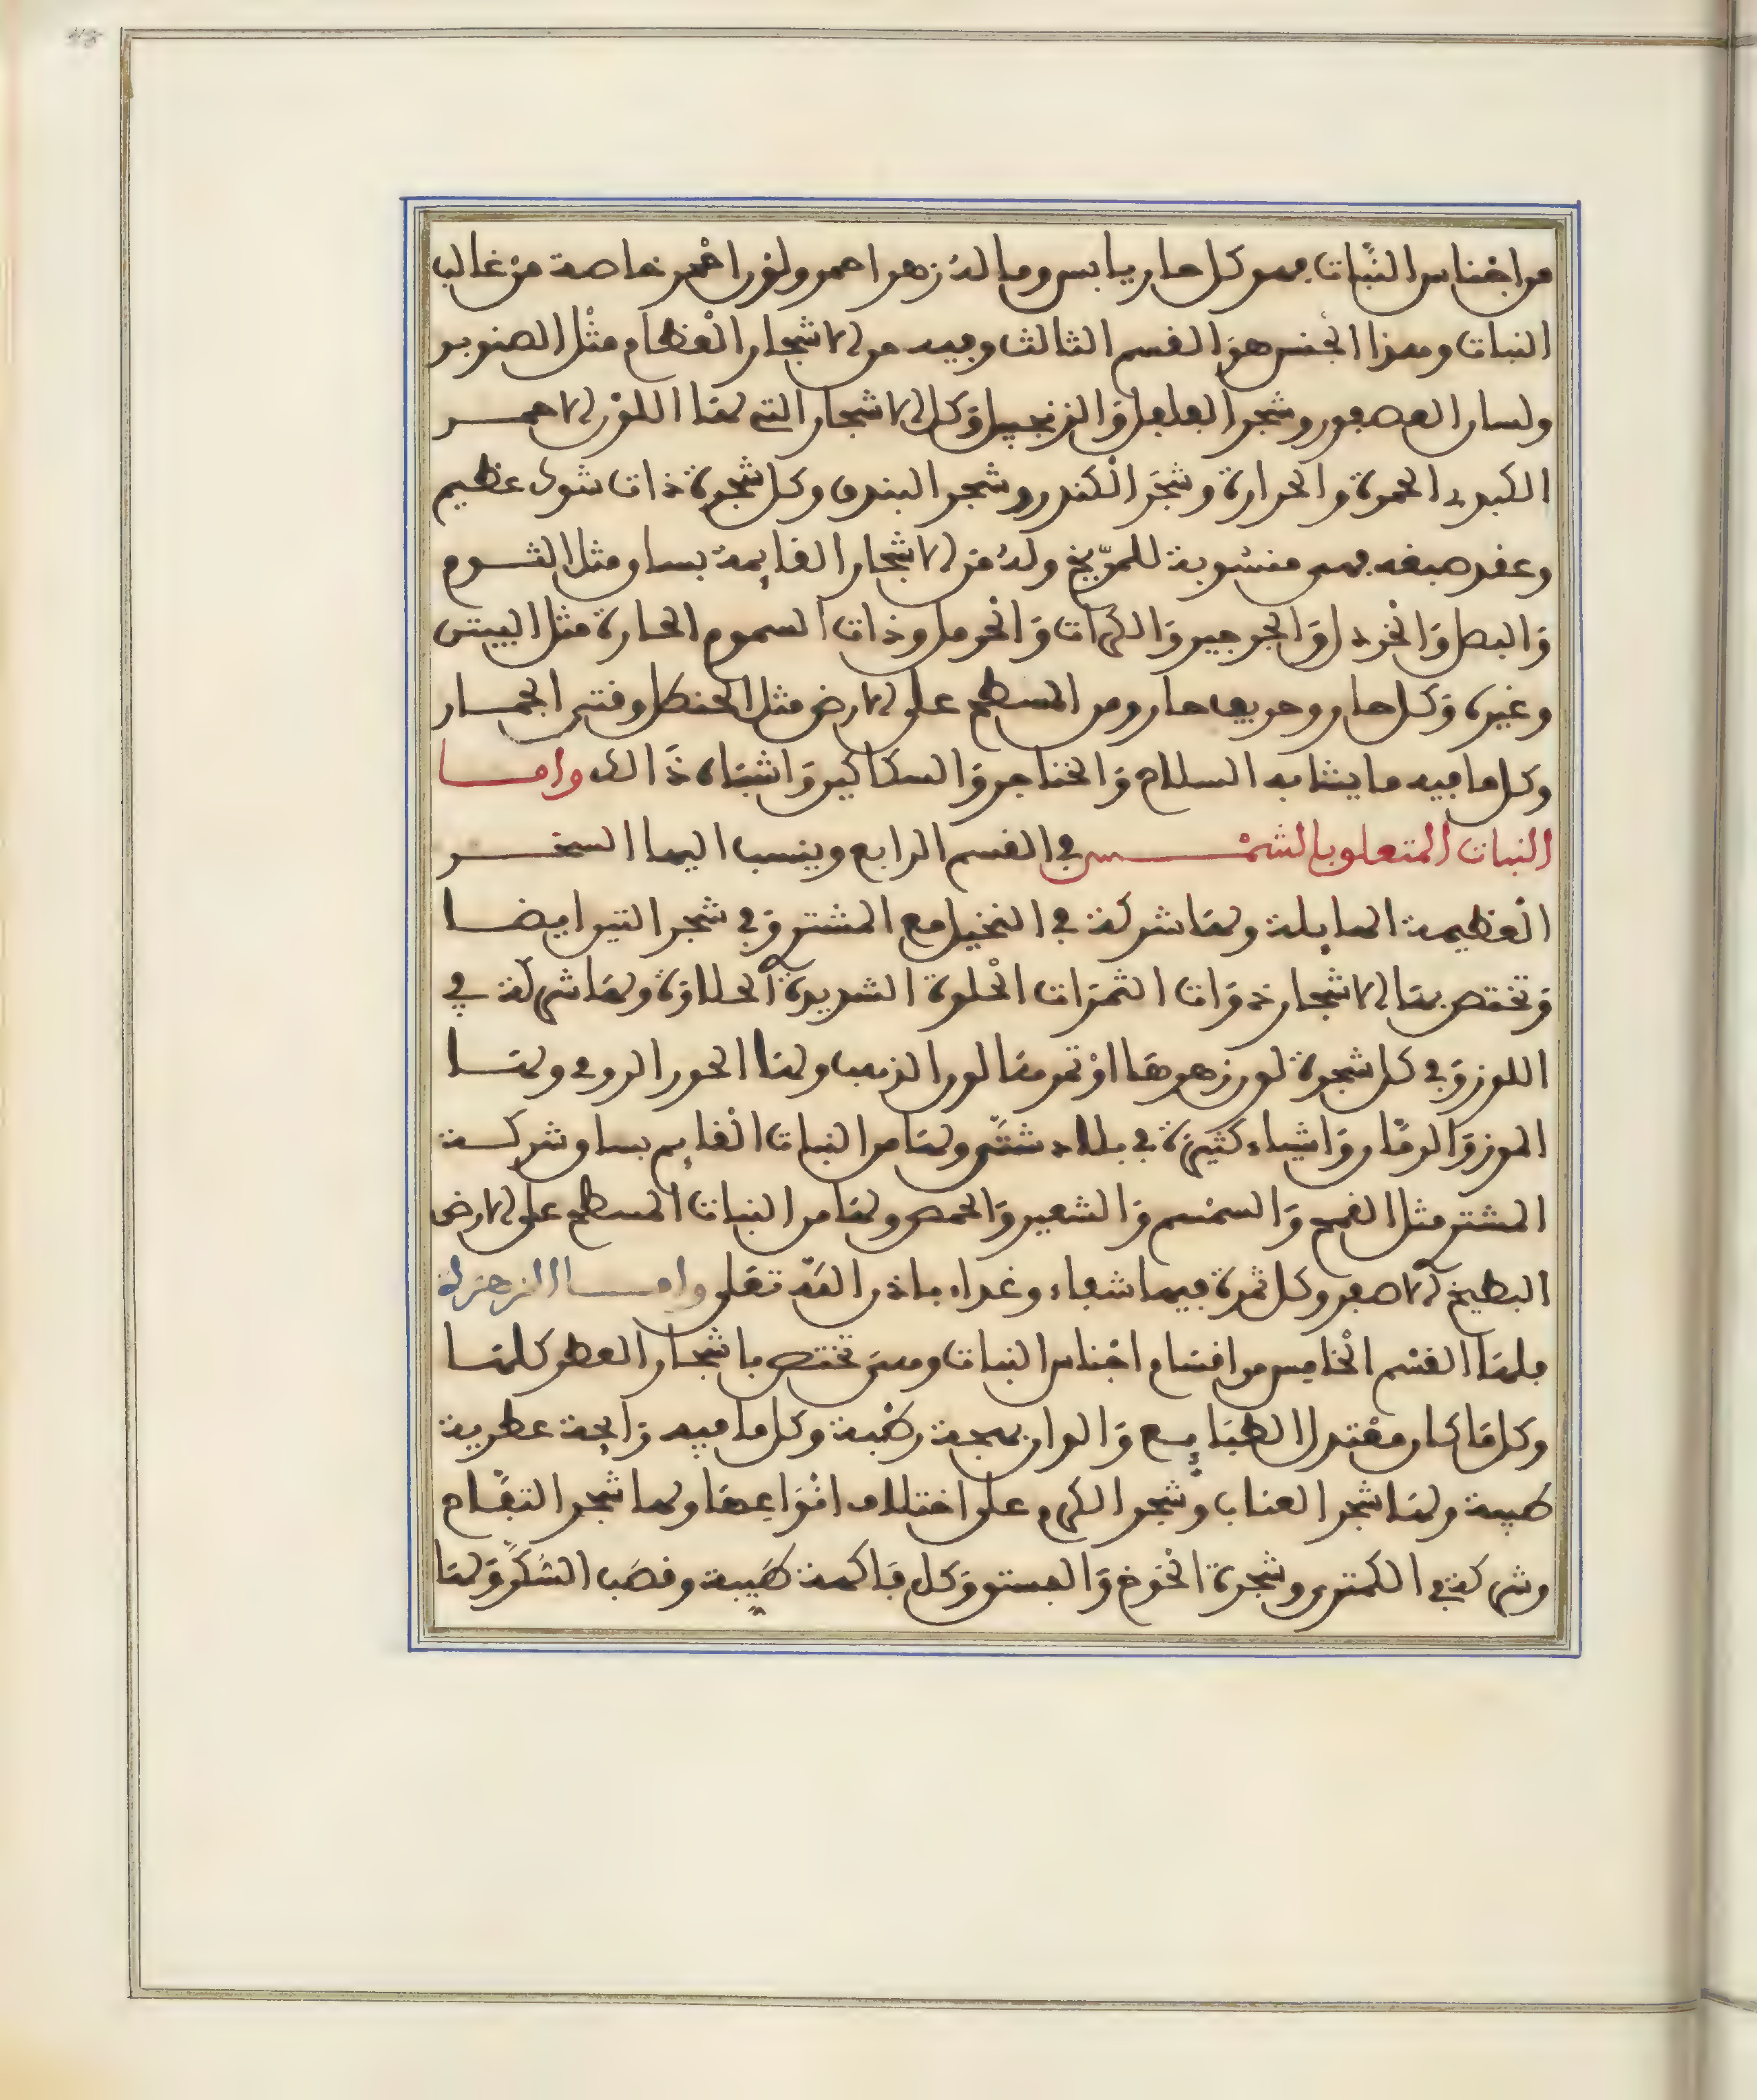 من اجْناس النّبات فهو كل حار يابس وما لهُ زهر احمر ولوْن احْمر خاصة منْ غالب
النبات وهذا الجنس هوَ القسم الثالث وفيه من الاشجار الْعظام مثْل الصنوبر
ولسان العصفور وشجر الفلفل وَالزنجبيل وَكل الاشجار التي لهَا اللوْن الاحمر
الكبد الحمرة والحرارة وشجَر الْكندر وشجر البندق وكل شجرة ذات شوك عظيم
وعقد صبغه فهي منسُوبة للمرّيخ ولهُ منَ الاشجار القايمة بساق مثل الثوم
وَالبصل وَالخردل وَالجرجير وَالكراث وَالْحرمل وذات السموم الحارة مثل البيش
وغيره وَكل حار وحريف حار ومن المسطح على الارض مثل الحنظل وقثى الحمار
وكل ما فيه ما يشابه السلاح وَالخناجر وَالسكاكين وَاشبَاه ذَالك واما
النبات المتعلق بالشمْس في القسم الرابع وينسب اليها السخر
الْعظيمة الهايلة ولهَا شركة في النخيل مع المشتري وَفي شجر التين ايضا
وَتختص بهَا الاشجار ذوَات الثمرَات الْحلوة الشديدة الحلاوَة ولهَا شركة في
اللوز وَفي كل شجرة لون زهرهَا اوْ ثمرهَا لون الذهب ولهَا الحور الرومي ولهَا
الموز وَالرمّان وَاشياء كثيرَة في بلاد شتّى ولهَا من النبات الْقايم بساق وشركة
المشتري مثل القمح وَالسمْسم وَالشعير وَالحمص ولهَا من النبات المسطح على الارض
البطيخ الاصفر وكل ثمرة فيها شفاء وغداء باذن اللّه تعلى واما الزهرَة
فلهَا القسْم الْخامس من اقسَام اجْناس النبات وهيَ تختص باشجار العطر كلهَا
وكل مَا كان معْتدل الطبَايع وَالوان بهجة رطْبة وكل ما فيه رَايحة عطرية
طيبة ولهَا شجر العناب وشجر الكرم على اختلاف انْوَاعهَا ولها شجر التفّاح
وشركة في الكمثرى وشجرة الْخوْخ وَالفستق وَكل فاكهة طَيبة وقصَب السُّكَّر وَلهَا